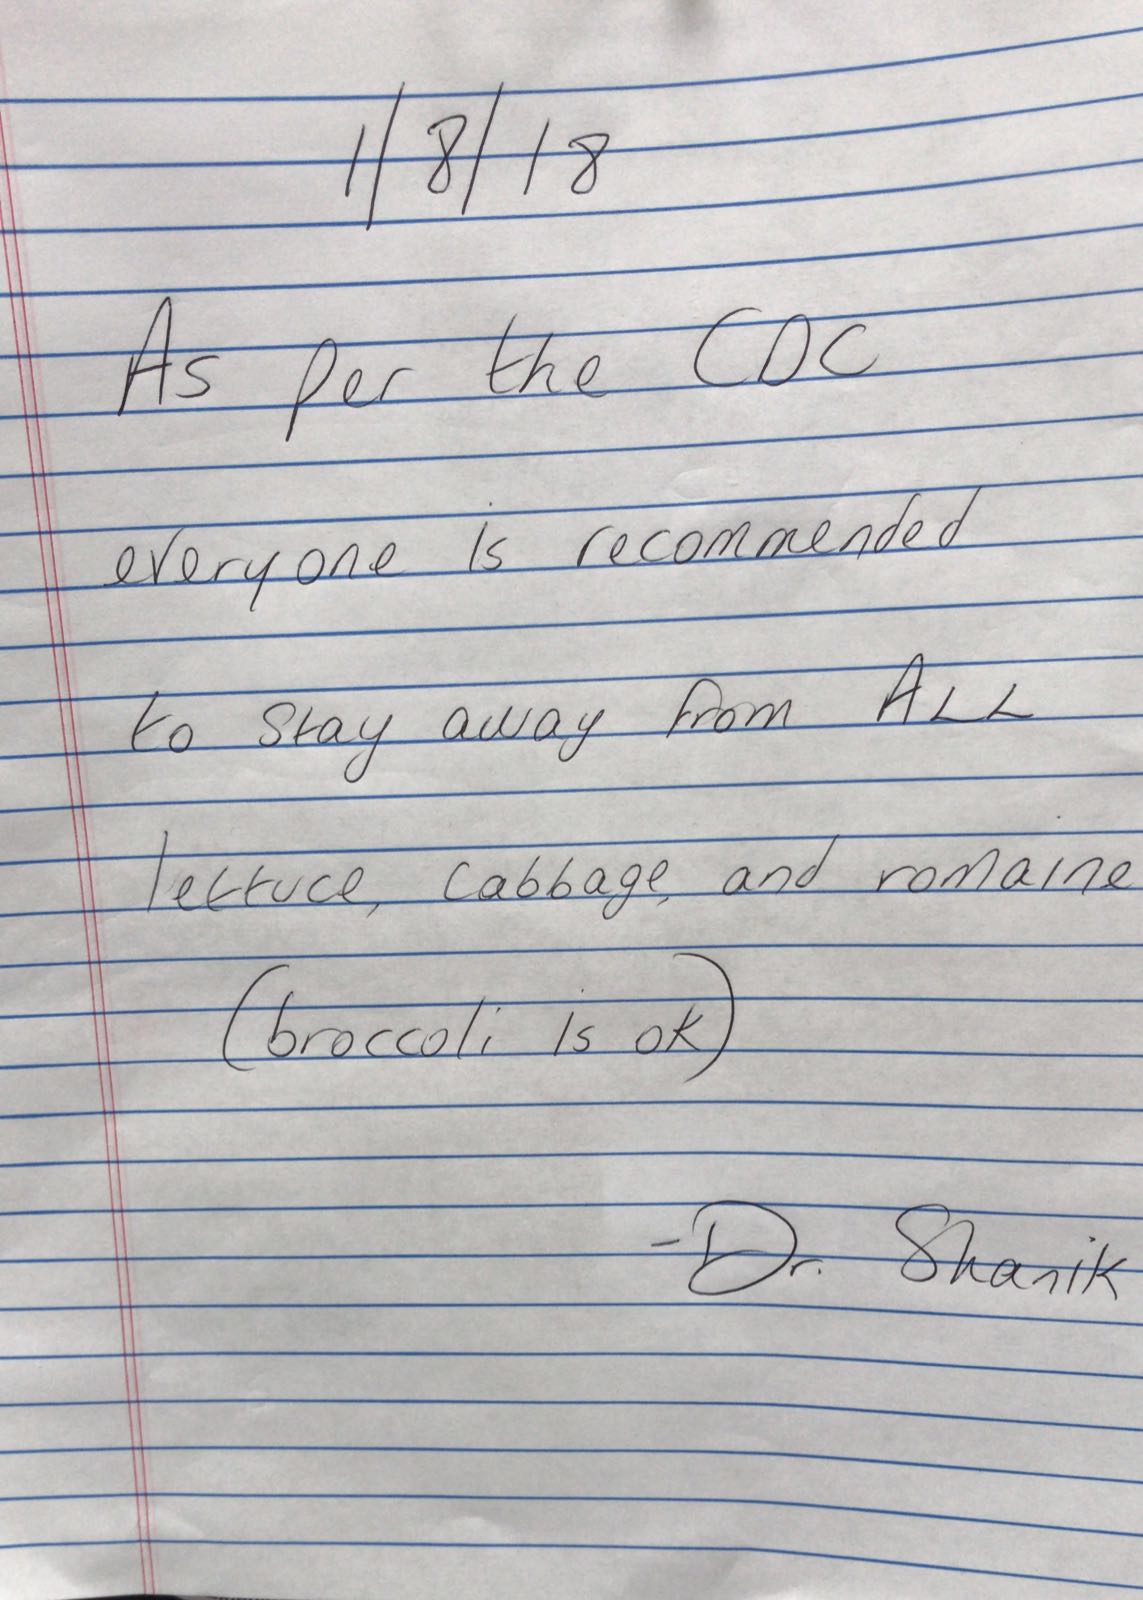 1/8/18
As per the CDC
everyone is recommended
to stay away from ALL
lettuce, cabbage, and romaine
(broccoli is ok)
-Dr. Shanik